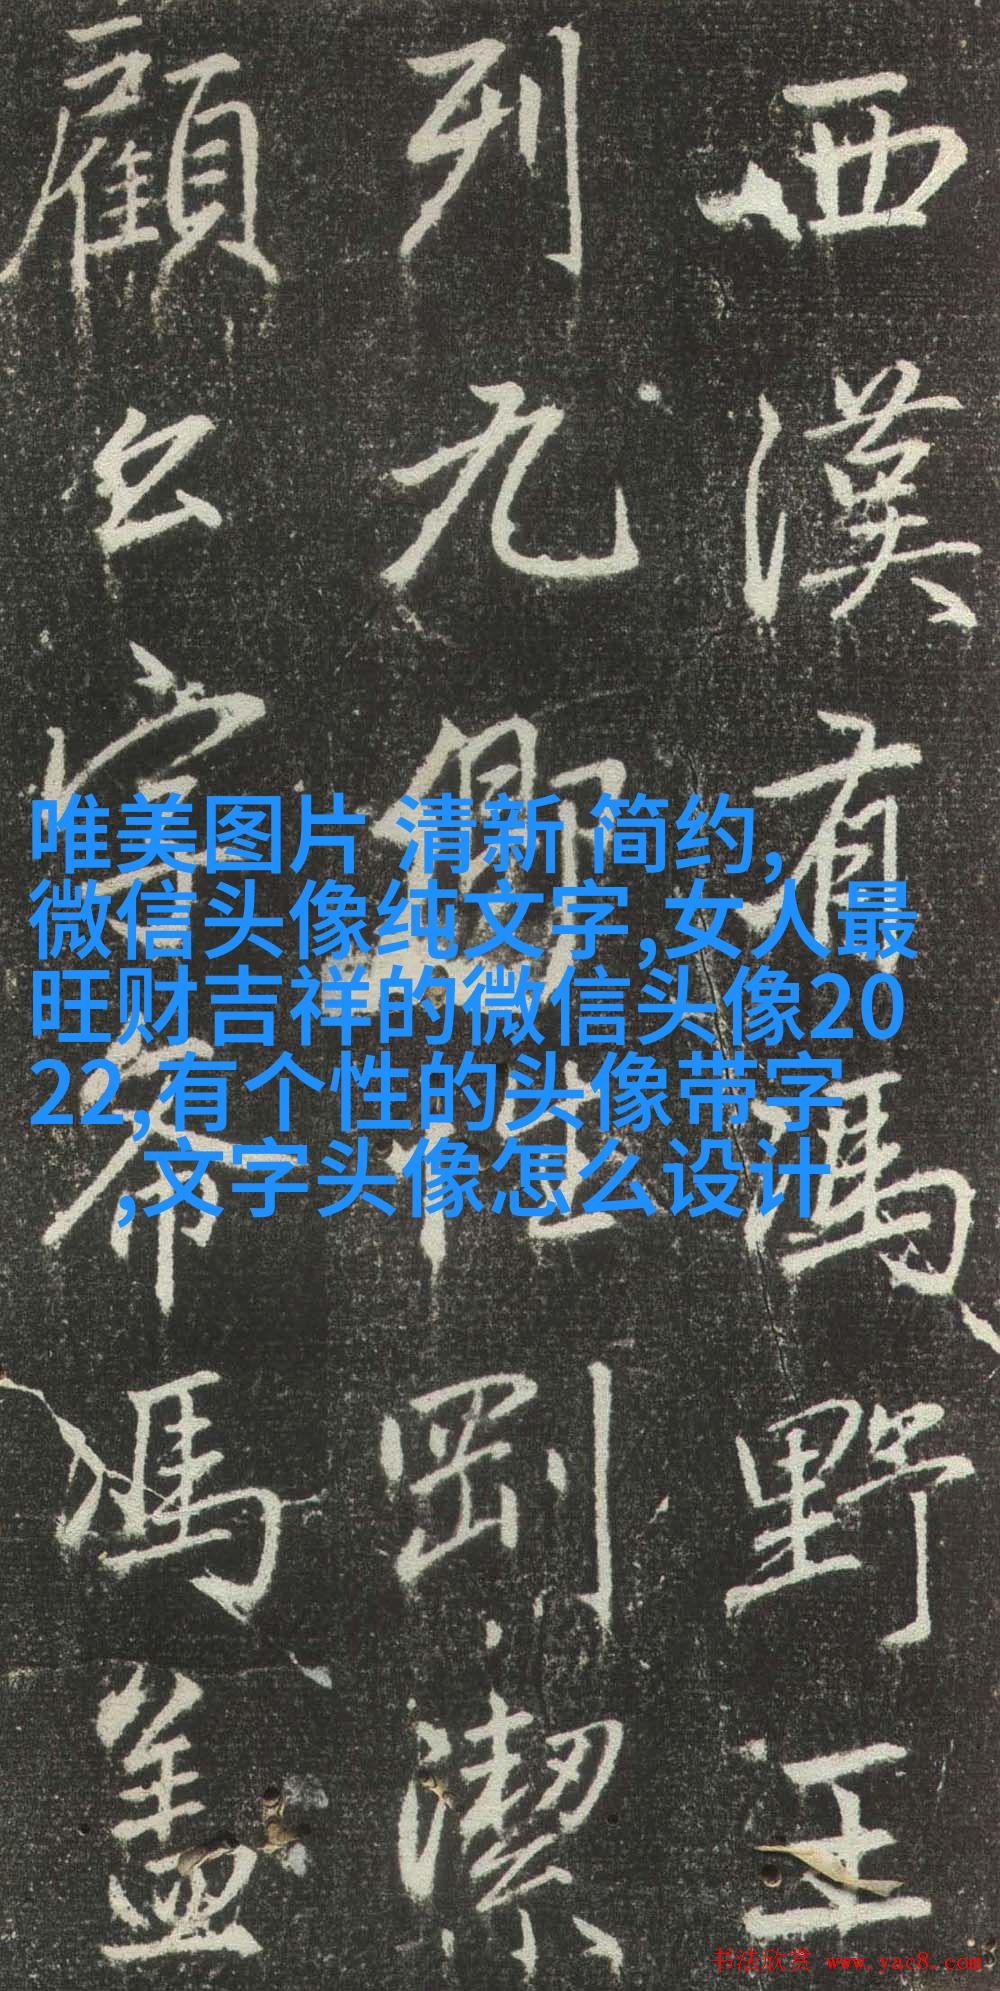 西漢有馮野王
列九卿性剛潔
顧馮盖
唯美图片 清新 简约,
微信头像纯文字,女人最
旺财吉祥的微信头像20
22,有个性的头像带字
,文字头像怎么设计
书法欣赏 www.yac8.com